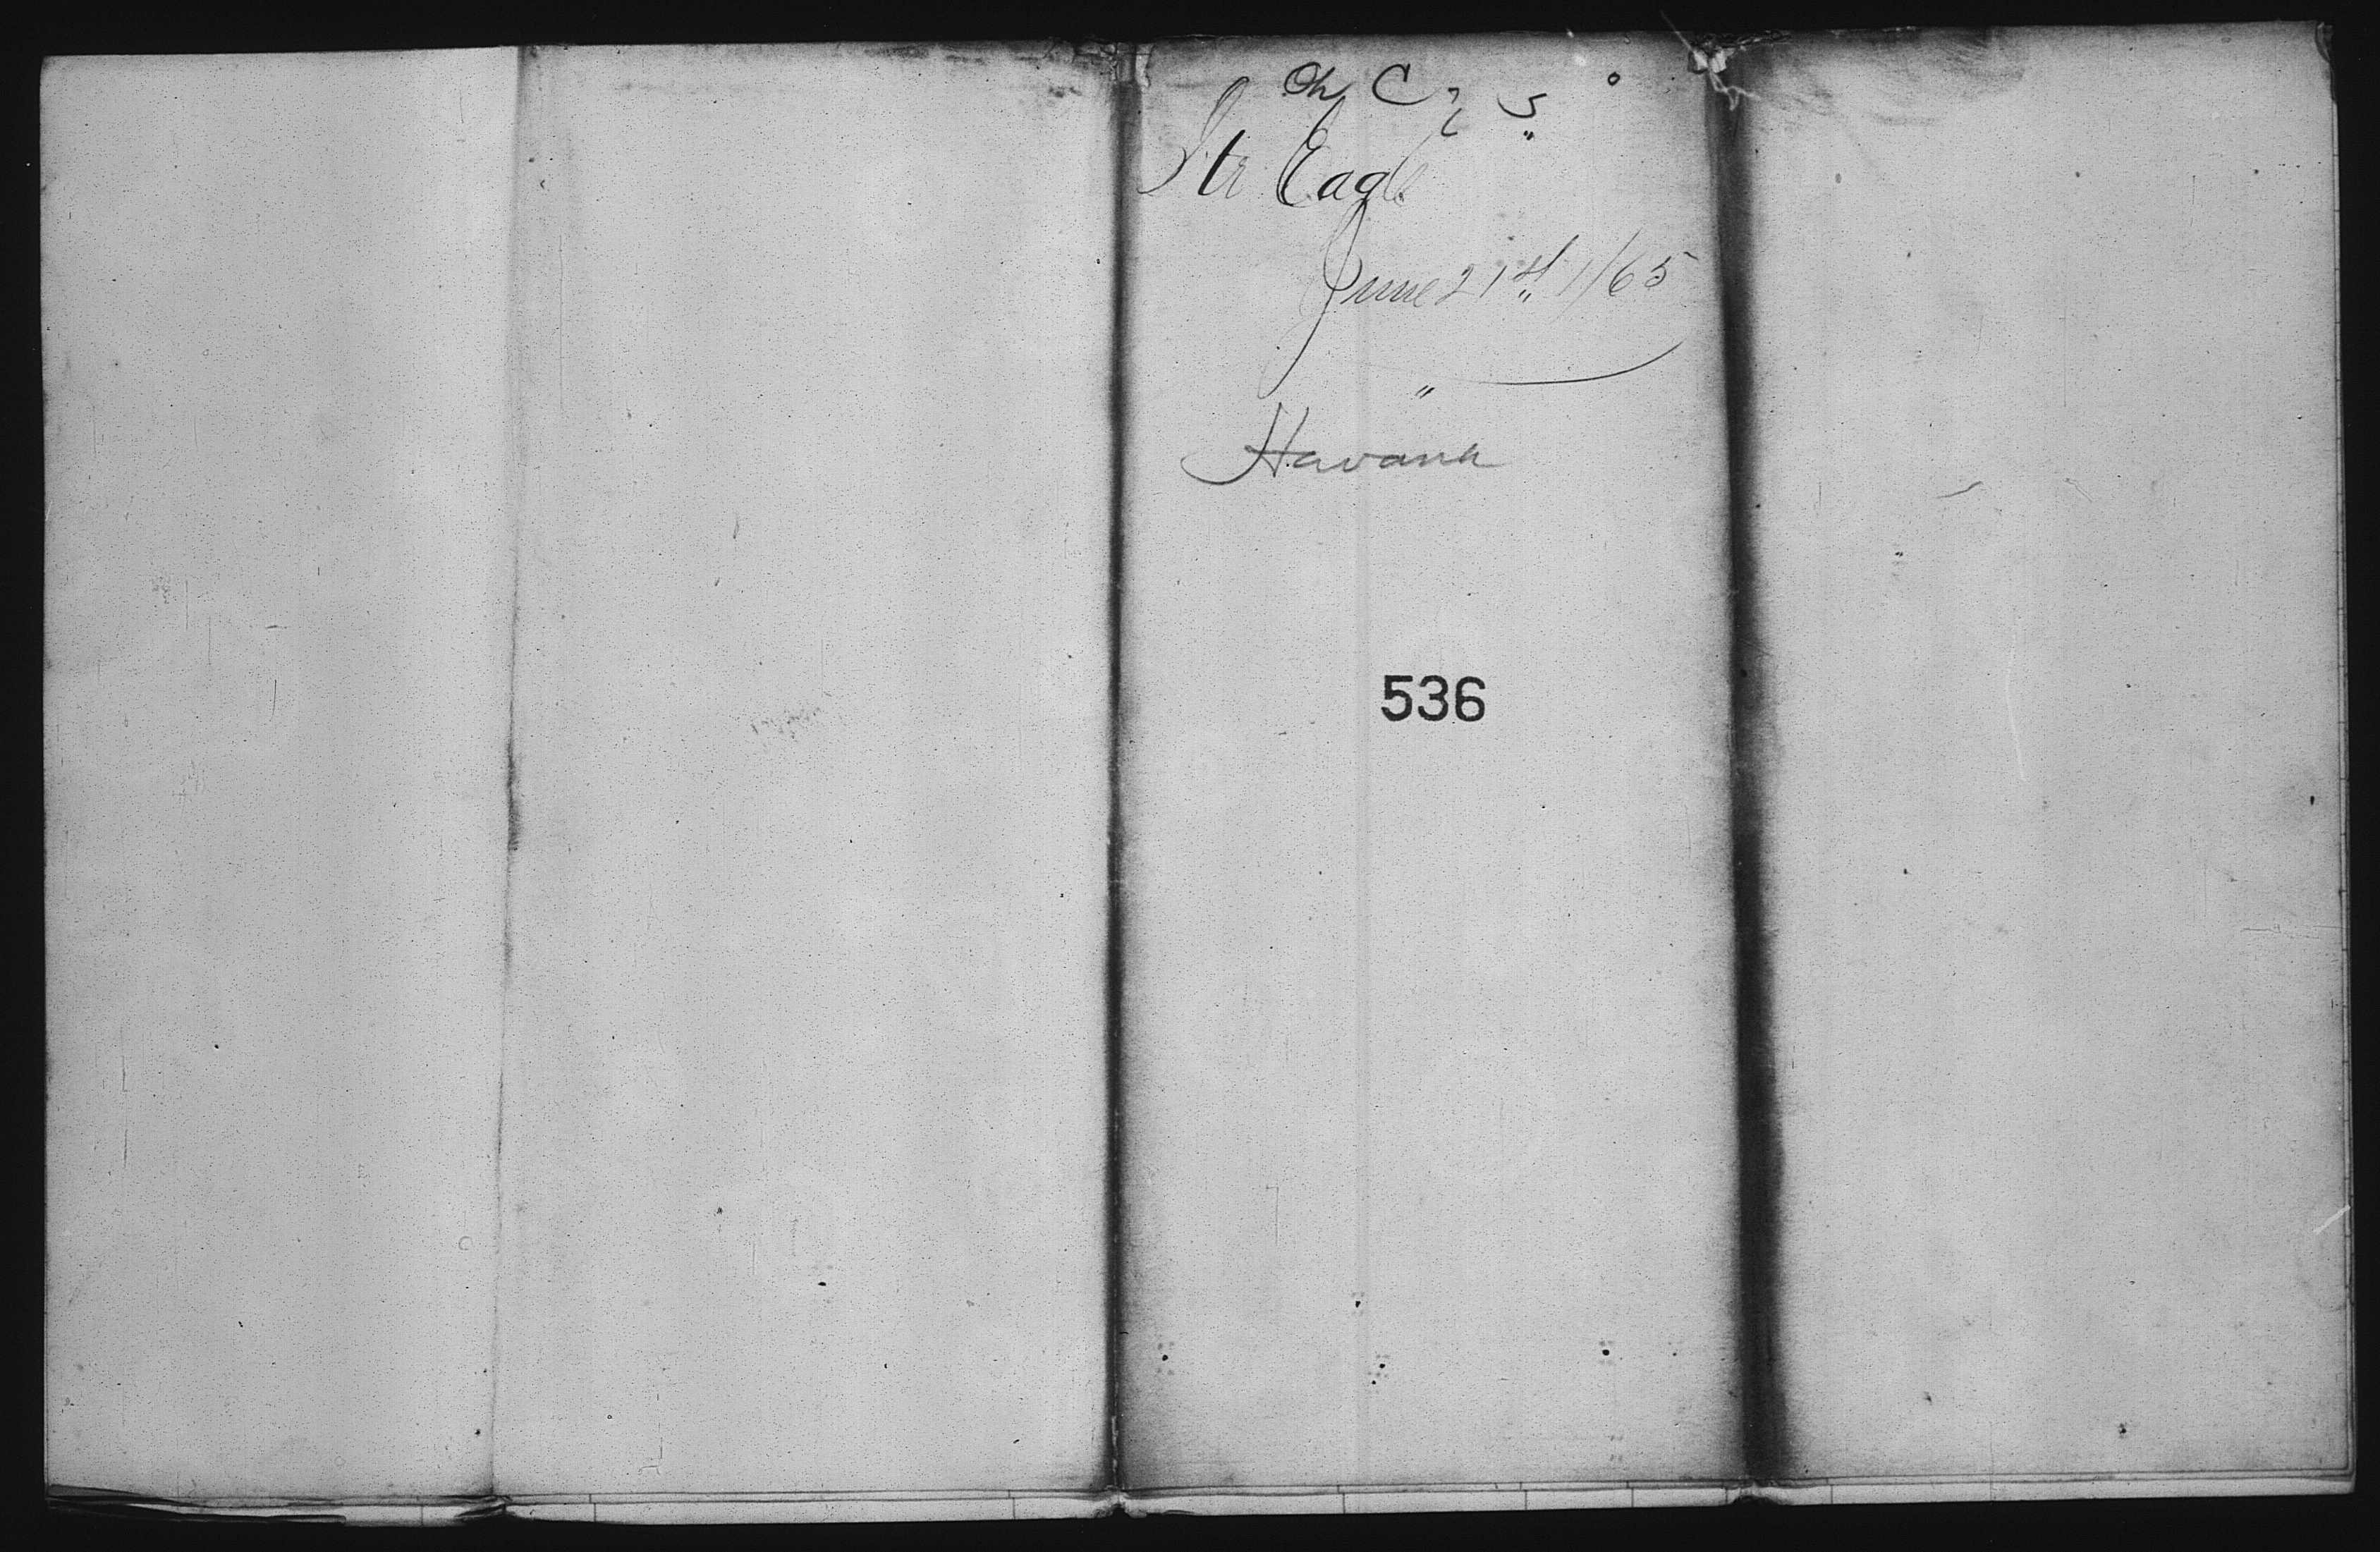 Str Eagle
June 21st 1865
"
Havana
536